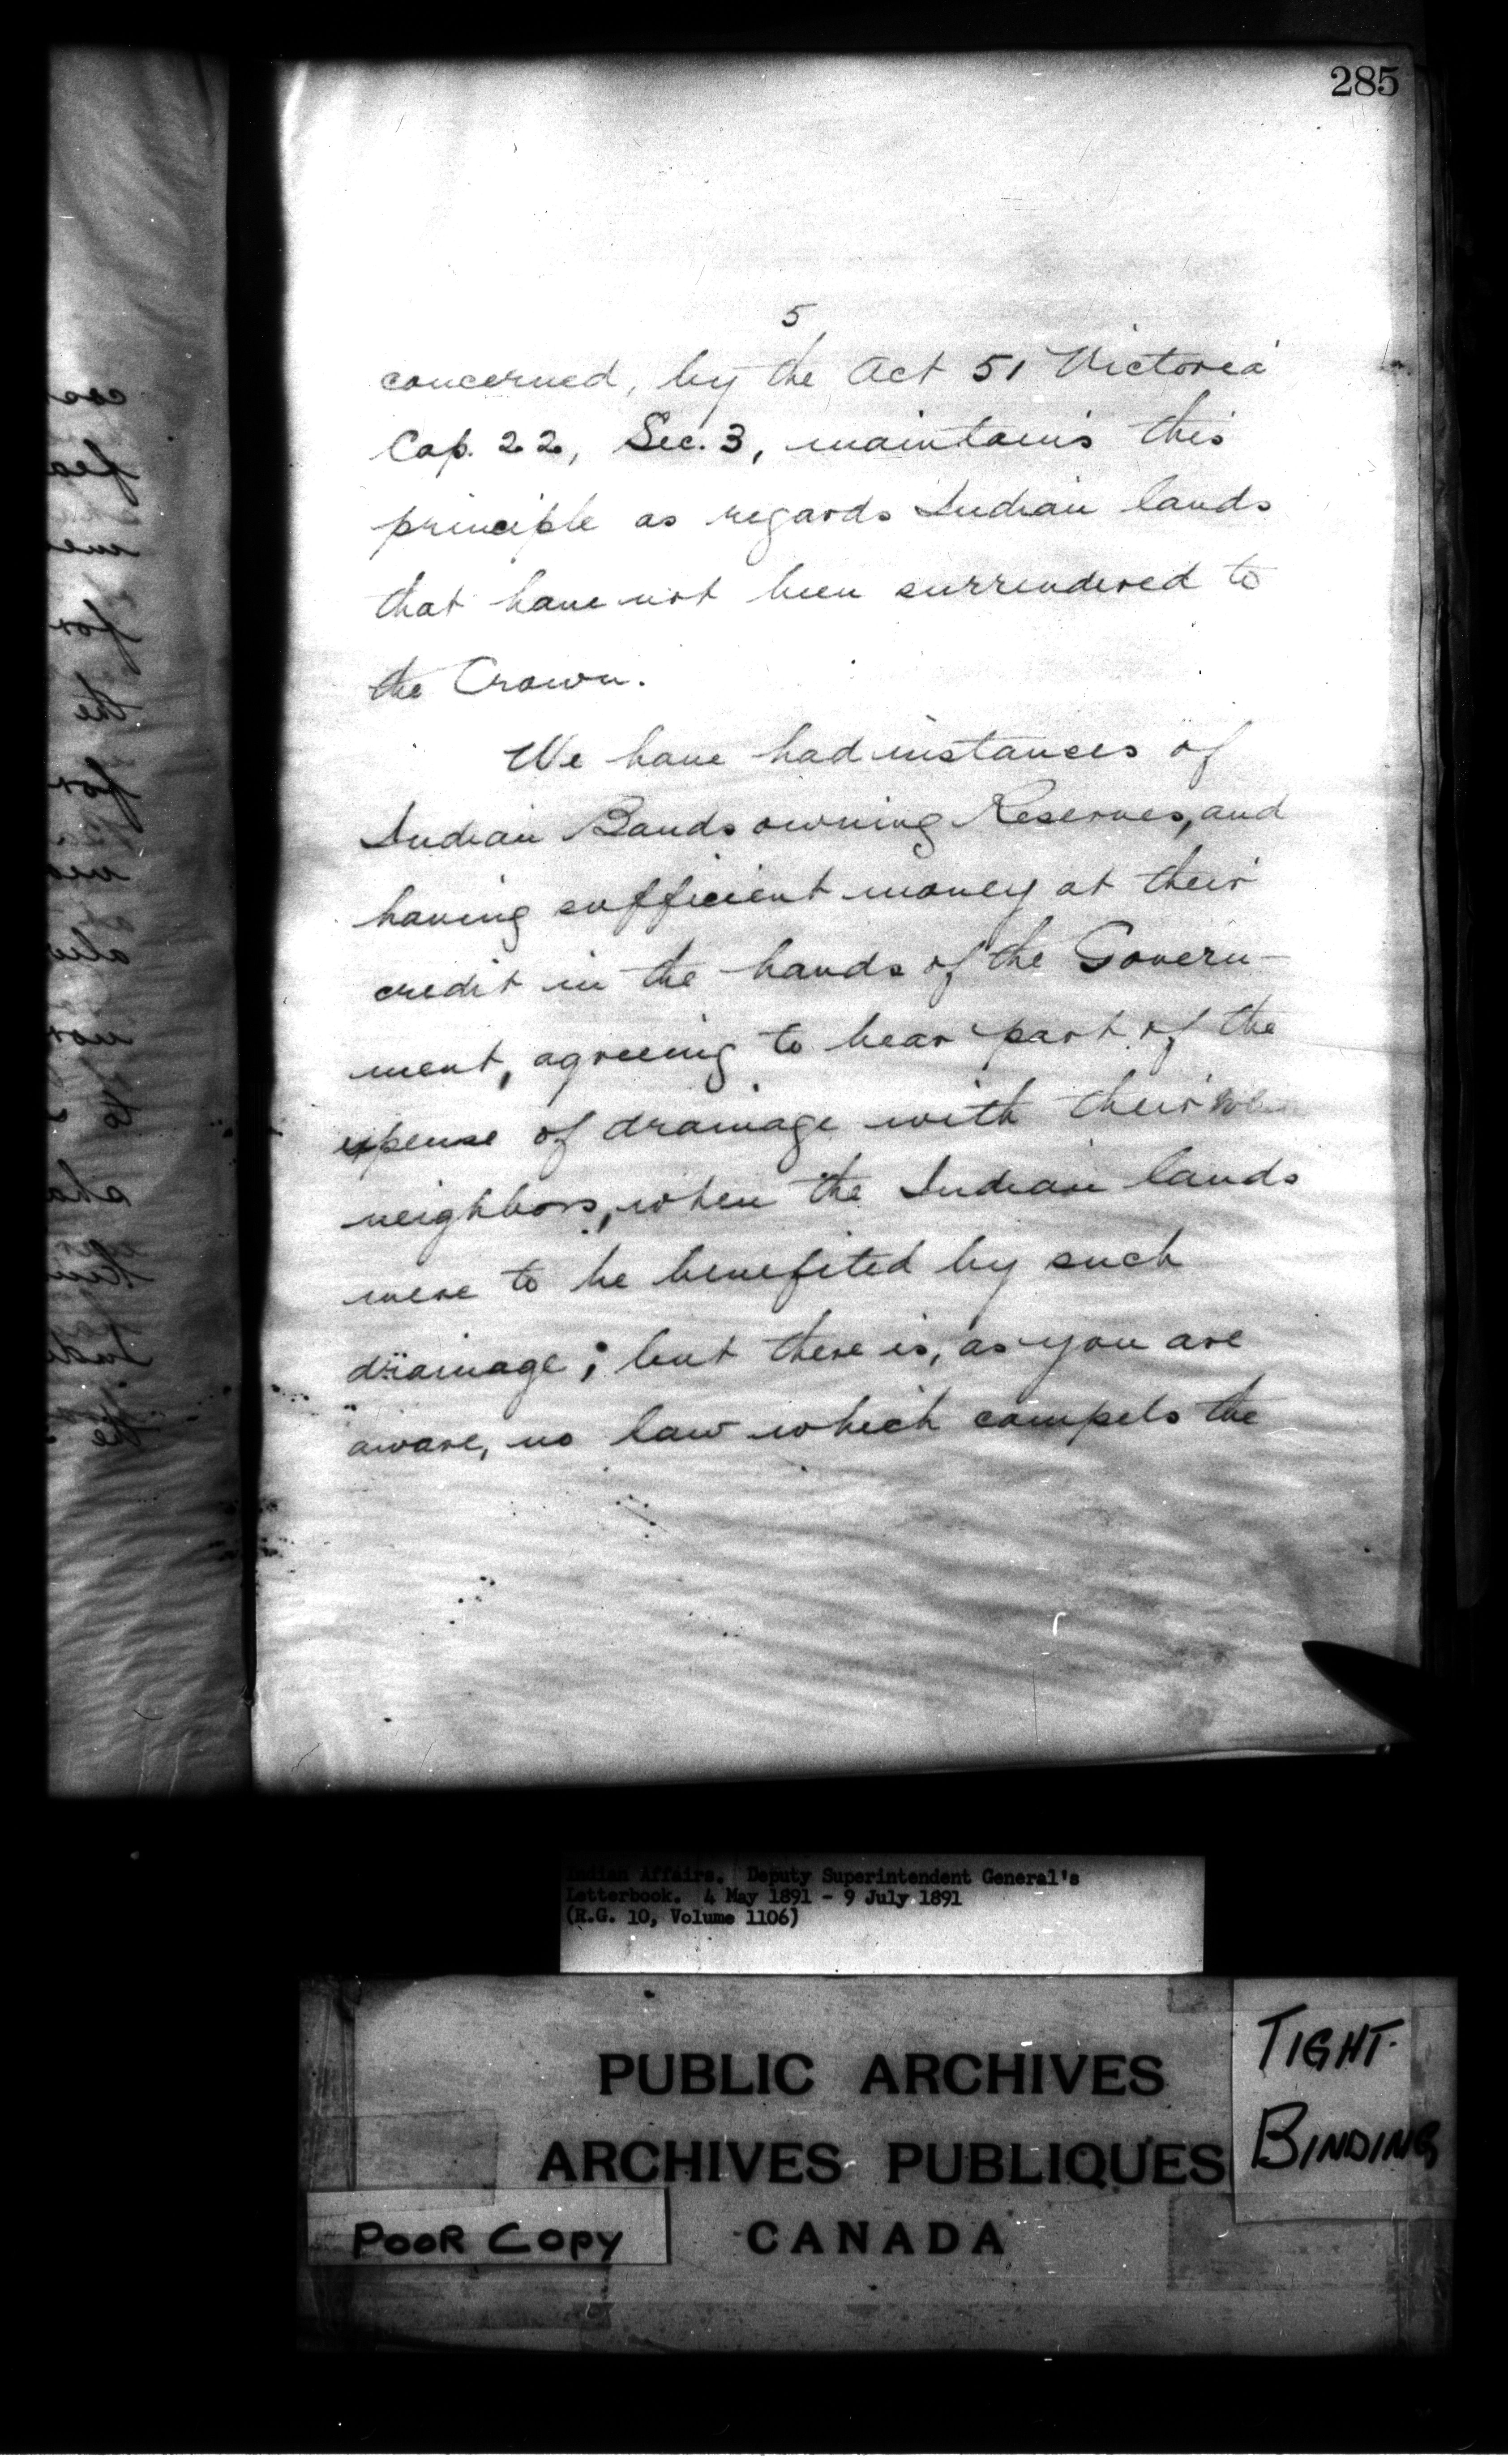 285
5
concerned, by the Act 51 Victoria
Cap. 22, Sec. 3, maintains this
principle as regards Indian lands
that have not been surrendered to
the Crown.
We have had instances of
Indian Bands owning Reserves, and
having sufficient money at their
credit in the hands of the Govern-
ment, agreeing to bear part of the
expense of drainage with their
neighbors, when the Indian lands
were to be benefited by such
drainage; but there is, as you are
aware, no law which compels the
Indian Affairs. Deputy Superintendent General's
Letterbook. 4 May 1891 - 9 July 1891
(R.G. 10, Volume 1106)
PUBLIC ARCHIVES
ARCHIVES PUBLIQUES
CANADA
TIGHT
BINDING
POOR COPY